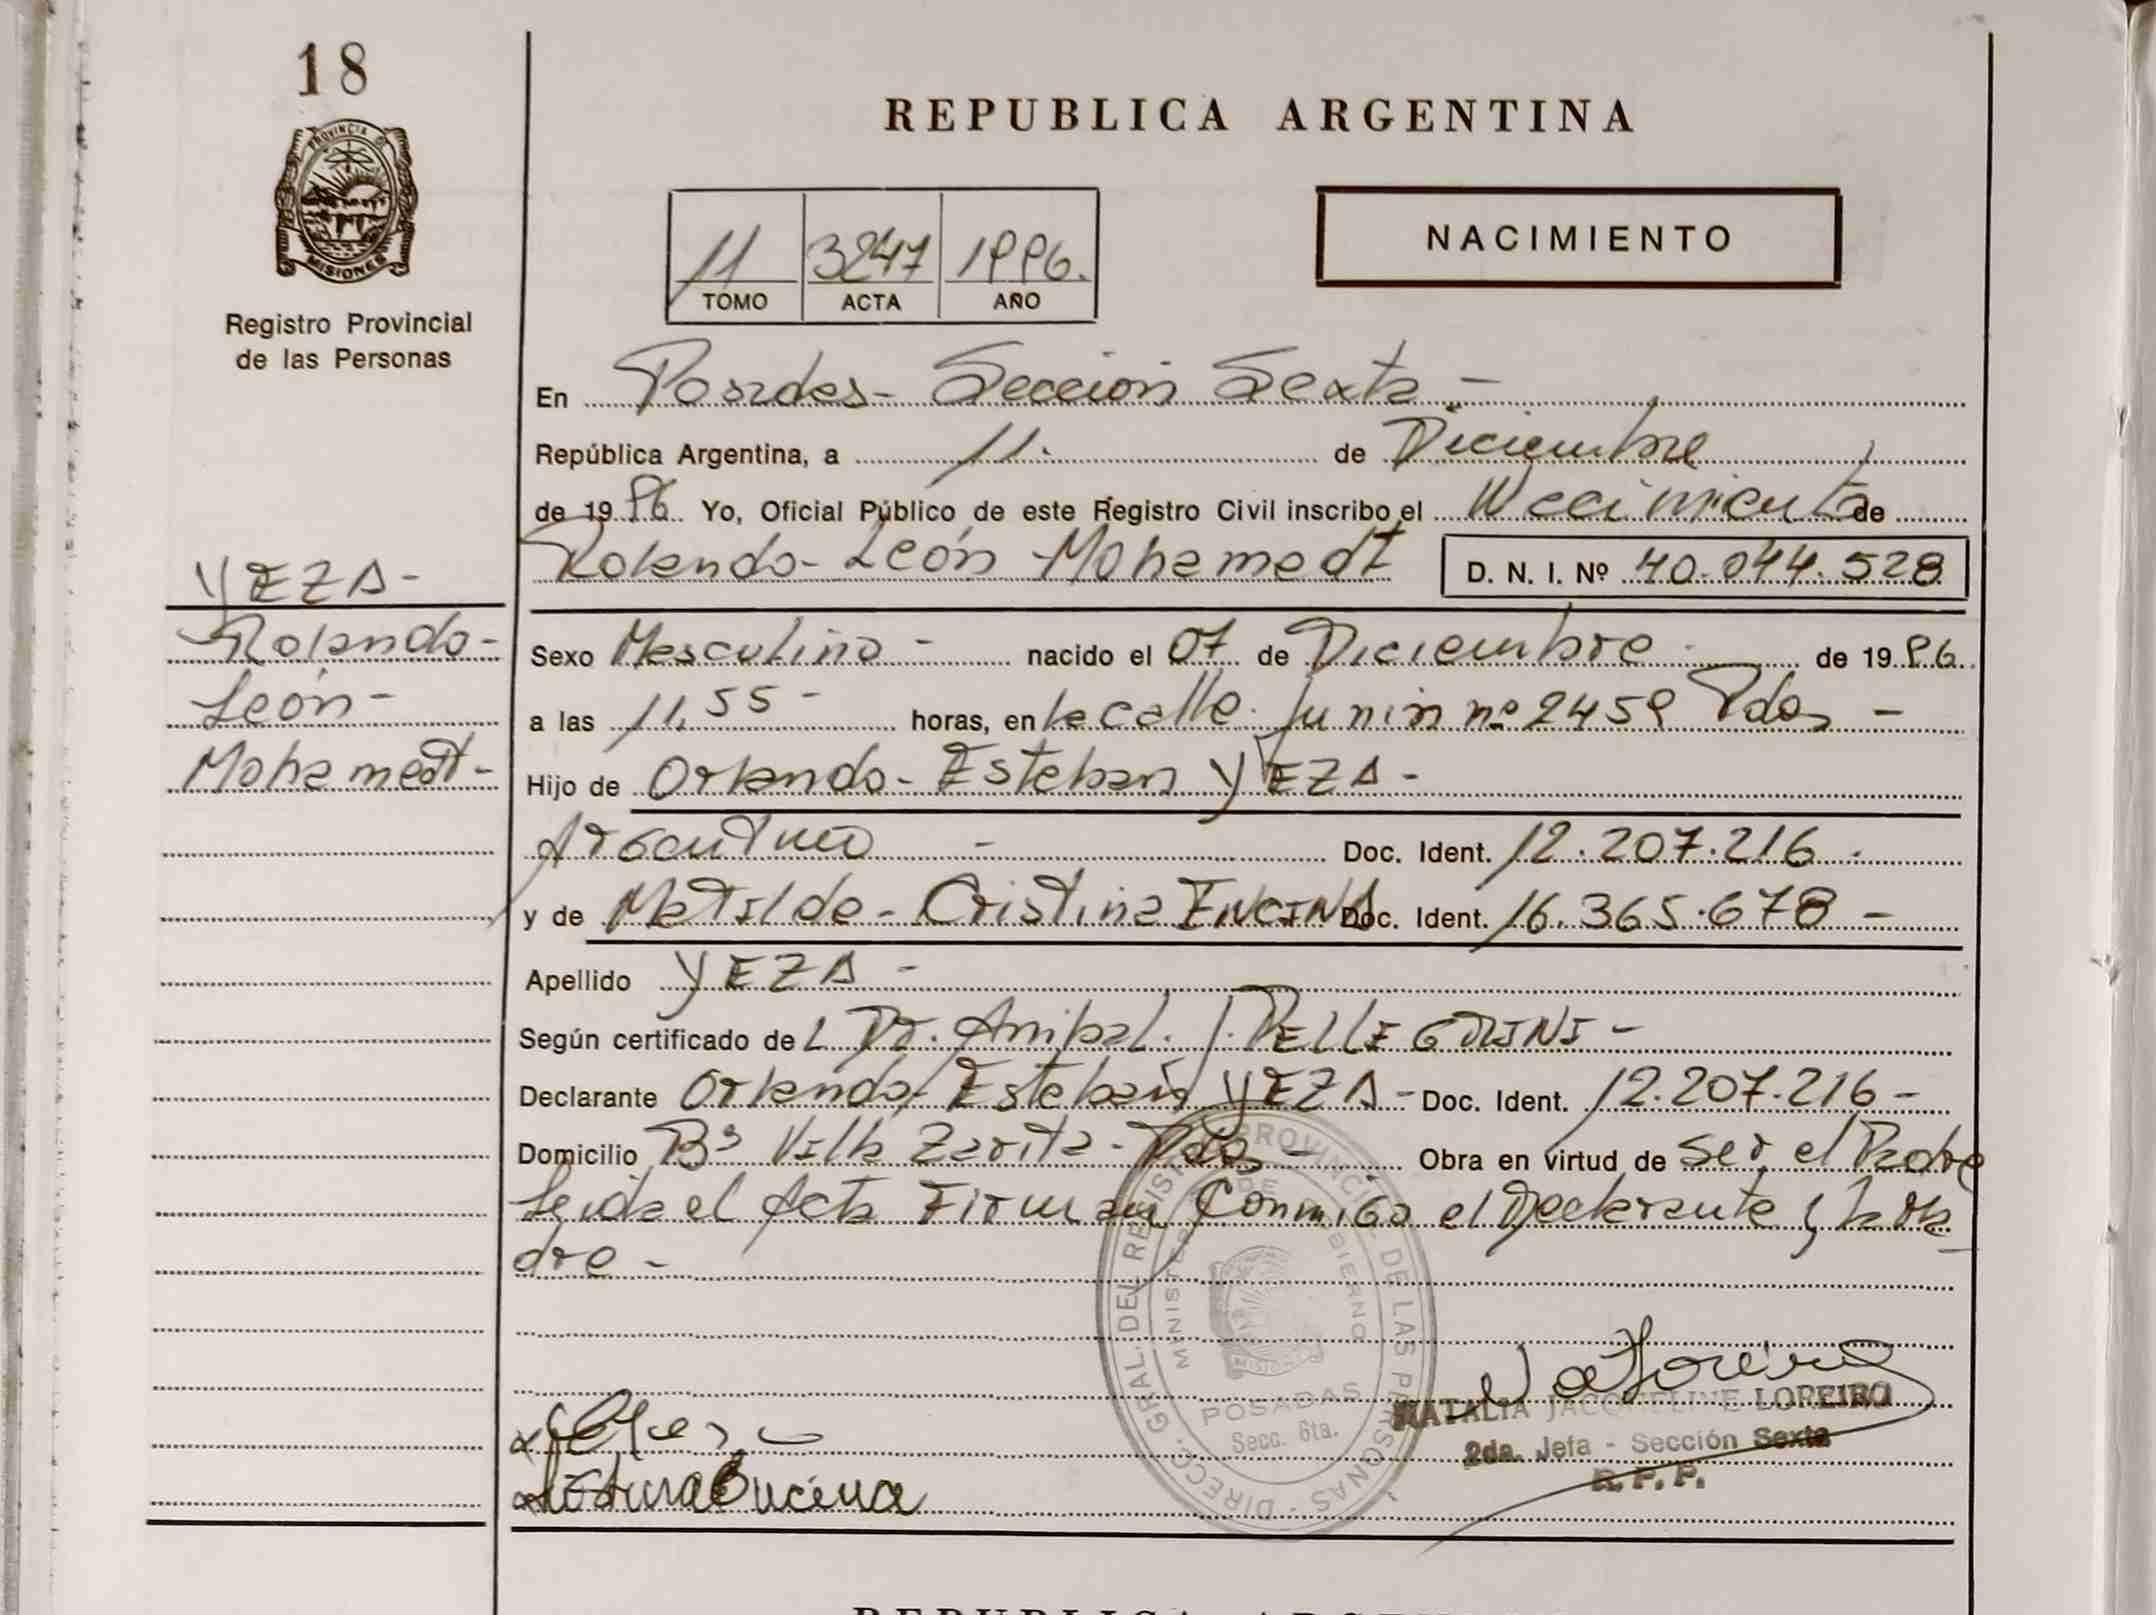 18
PROVINCIA DE
MISIONES
Registro Provincial
de las Personas
REPUBLICA ARGENTINA
11 3247 1996.
TOMO ACTA AÑO
NACIMIENTO
En Posadas - Sección Sexta -
República Argentina, a 11. de Diciembre
de 1996 Yo, Oficial Público de este Registro Civil inscribo el Nacimiento de
Rolando - León - Mohamedt D. N. I. Nº 40.044.528
YEZA -
Rolando -
León -
Mohamedt -
Sexo Masculino - nacido el 07 de Diciembre - de 1996.
a las 11,55 - horas, en la calle Junin nº 2459 Pdas -
Hijo de Orlando - Esteban YEZA -
Argentino - Doc. Ident. 12.207.216 .
y de Matilde - Cristina ENCINA Doc. Ident. 16.365.678 -
Apellido YEZA -
Según certificado de L Dr. Anibal. J. PELLEGRINI -
Declarante Orlando Esteban YEZA - Doc. Ident. 12.207.216 -
Domicilio Bº Villa Zarita - Pdas - Obra en virtud de ser el Padre
Leida el Acta Firman Conmigo el Declarante y la Ma
dre -
DIRECC. GRAL. DEL REGISTRO PROVINCIAL DE LAS PERSONAS
MINISTERIO DE GOBIERNO
MISIONES
POSADAS
Secc. 6ta.
NATALIA JACQUELINE LOREIRO
2da. Jefa - Sección Sexta
R. P. P.
Encina
REPUBLICA ARGENTINA